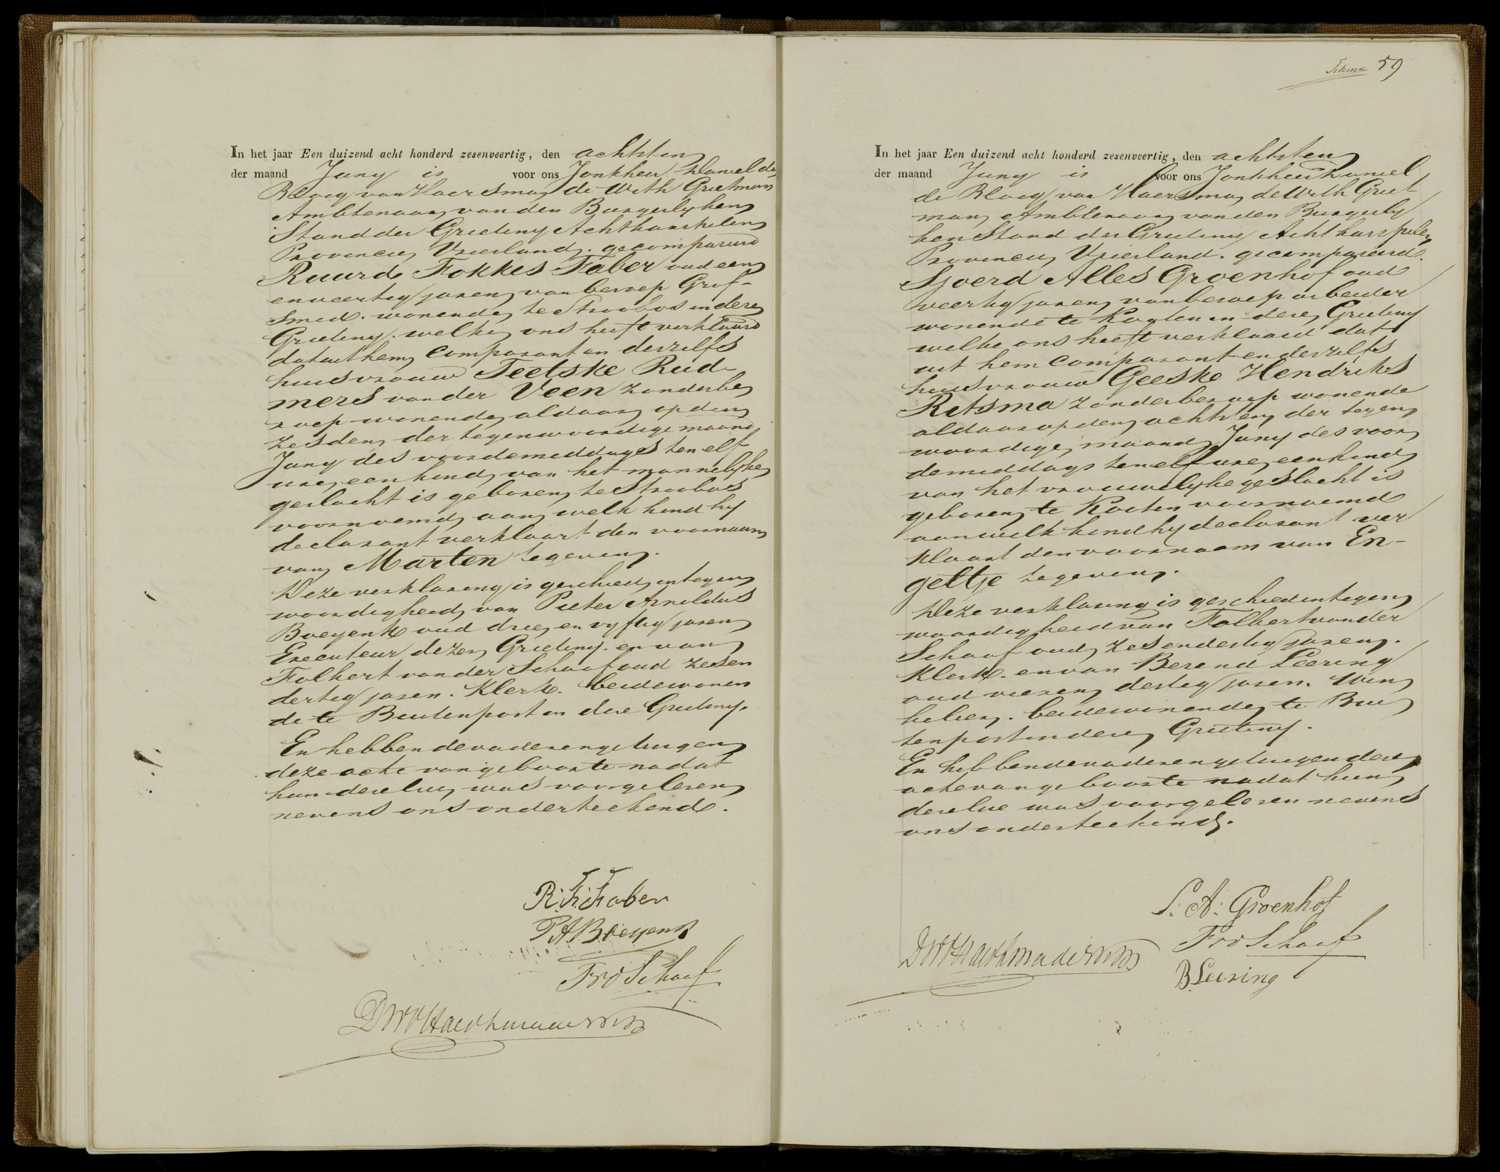 In het jaar Een duizend acht honderd zesenveertig, den achtsten
der maand Juny is voor ons Jonkheer Daniel de
Blocq van Haersma de With Grietman
Ambtenaar van den Burgerlyken
Stand der Grieteny Achtkarspelen
Provincie Vriesland. gecompareerd
Ruurd Fokkes Faber oud een
en veertig jaren van beroep Grof-
smid. wonende te Stroobos in deze
Grieteny. welke ons heeft verklaard
dat uit hem comparant en deszelfs
huisvrouw Teetske Rud-
mers van der Veen zonder be
roep wonende aldaar op den
zesden der tegenwoordige maand
Juny des voordemiddags ten elf
ure een kind van het mannelyke
geslacht is geboren te Stroobos
voornoemd aan welk kind hy
declarant verklaart den voornaam
van Marten te geven.
Deze verklaring is geschied in tegen
woordigheid van Pieter Arnoldus
Boeyenk oud drie en vyftig jaren
Executeur dezer Grieteny. en van
Folkert van der Schaaf oud zesen
dertig jaren. Klerk. beide wonen
de te Buitenpost in deze Grieteny.
En hebben de vader en getuigen
deze acte van geboorte nadat
hun dezelve was voorgelezen
nevens ons onderteekend.
R. F. Faber
P. A Boeyenk
F v d Schaaf
D d B v Haersma de With
Tekma 59
In het jaar Een duizend acht honderd zesenveertig, den achtsten
der maand Juny is voor ons Jonkheer Daniel
de Blocq van Haersma de With Griet
man, Ambtenaar van den Burgerly
ken Stand der Grieteny Achtkarspelen
Provincie Vriesland. gecompareerd.
Sjoerd Alles Groenhof oud
veertig jaren van beroep arbeider
wonende te Kooten in deze Grieteny
welke ons heeft verklaard dat
uit hem comparant en deszelfs
huisvrouw Geeske Hendriks
Ritsma zonder beroep wonende
aldaar op den achtsten der tegen
woordige maand Juny des voor
demiddags ten elf ure een kind
van het vrouwelyke geslacht is
geboren te Kooten voornoemd
aan welk kind hy declarant ver
klaart den voornaam van En-
geltje te geven.
Deze verklaring is geschied in tegen
woordigheid van Folkert van der
Schaaf oud zesendertig jaren.
Klerk. en van Berend Leering
oud vier en dertig jaren. Win
kelier. beide wonende te Bui
tenpost in deze Grieteny.
En hebben de vader en getuigen deze
acte van geboorte nadat hun
dezelve was voorgelezen nevens
ons onderteekend.
S. A. Groenhof
F v d Schaaf
D d B v Haersma de With
B Leering